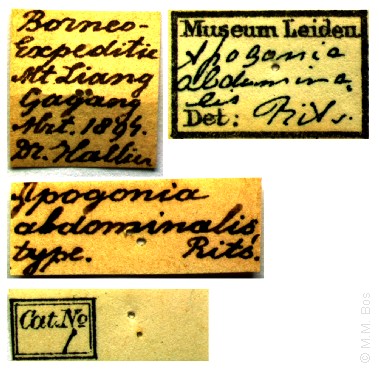 Borneo-
Expeditie
Mt Liang
Gagang
Mrt. 1894.
Dr. Hallier
Museum Leiden
Apogonia
abdomina-
lis
Det: Rits.
Apogonia
abdominalis,
type. Rits.
Cat. No
1
© M.M. Bos